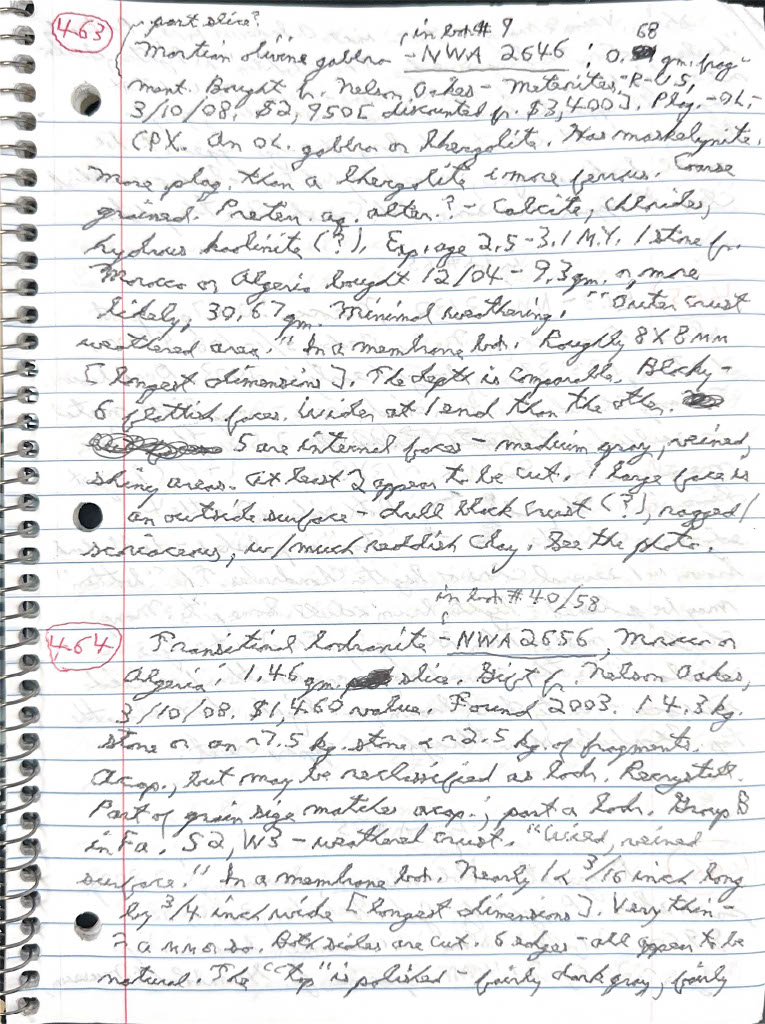 part slice? in box # 9 68
463 Martian olivine gabbro - NWA 2646 ; 0. gm. frag-
ment. Bought fr. Nelson Oakes - Meteorites-R-US,
3/10/08. $2,950 [discounted fr. $3,400]. Plag. - OL. -
CPX. An OL. gabbro or lherzolite. Has maskelynite.
More plag. than a lherzolite & more ferrous. Coarse
grained. Preterr. aq. alter.? - Calcite, chlorides,
hydrous kaolinite (?). Exp. age 2.5 - 3.1 M.Y. 1 stone fr.
Morocco or Algeria bought 12/04 - 9.3 gm. or, more
likely, 30.67 gm. Minimal weathering. "Outer crust
weathered area." In a membrane box. Roughly 8 X 8 MM
[longest dimensions]. The depth is comparable. Blocky -
6 flattish faces. Wider at 1 end than the other.
5 are internal faces - medium gray, veined,
shiny areas. At least 2 appear to be cut. 1 large face is
an outside surface - dull black crust (?), ragged/
scoriaceous, w/ much reddish clay. See the photo.
in box # 40/58
464 Transitional lodranite - NWA 2656, Morocco or
Algeria: 1.46 gm. slice. Gift fr. Nelson Oakes,
3/10/08. $1,460 value. Found 2003. 1 4.3 kg.
stone or an ~7.5 kg. stone & ~2.5 kg. of fragments.
Acap., but may be reclassified as lodr. Recrystall.
Part of grain size matches acap.; part a lodr. Group B
in Fa. S2, W3 - weathered crust. "Wired, veined
surface." In a membrane box. Nearly 1 & 3/16 inch long
by 3/4 inch wide [longest dimensions]. Very thin -
? a MM or so. Both sides are cut. 6 edges - all appear to be
natural. The "top" is polished - fairly dark gray, fairly